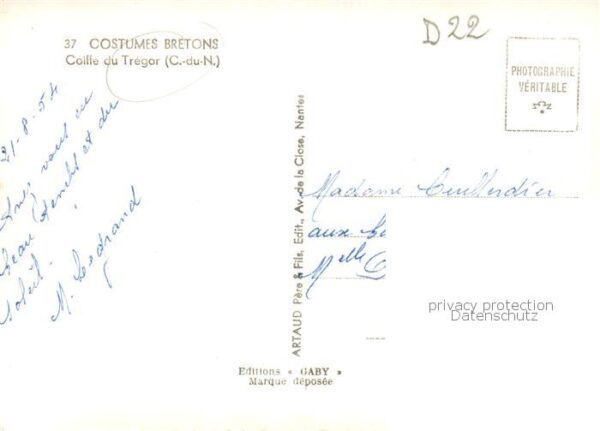 37 COSTUMES BRETONS
Coiffe du Trégor (C.-du-N.)
D22
PHOTOGRAPHIE
VÉRITABLE
21-8-54
Avez vous eu
beau temps et du
soleil.
M. Legrand
ARTAUD Père & Fils, Edit., Av. de la Close, Nantes
Madame
aux
Melle
privacy protection
Datenschutz
Editions « GABY »
Marque déposée